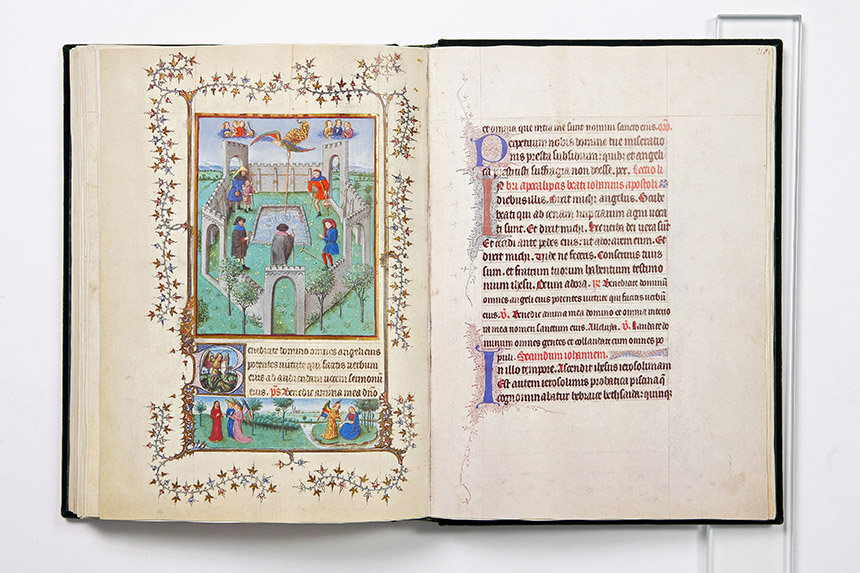 Benedicite domino omnes angeli eius
potentes virtute qui facitis verbum
eius ad audiendam vocem sermonum
eius. Benedic anima mea dño
et omnia que intra me sunt nomini sancto eius.
Perpetuum nobis domine tue miseratio
nis presta subsidium: quibus et angeli
ca prestitisti suffragia non deesse. per. Lectio li
bri apocalipsis beati iohannis apostoli
In diebus illis. Dixit michi angelus. Scribe
beati qui ad cenam nuptiarum agni voca
ti sunt. Et dixit michi. hec verba dei vera sunt
Et cecidi ante pedes eius: ut adorarem eum. Et
dixit michi. vide ne feceris. Conservus tuus
sum. et fratrum tuorum habentium testimo
nium ihesu. Deum adora. Benedicite dominum
omnes angeli eius potentes virtute qui facitis verbum
eius. V. Benedic anima mea domino et omnia interio
ra mea nomen sanctum eius. Alleluya. V. Laudate do
minum omnes gentes et collaudate eum omnes po
puli. Secundum iohannem.
In illo tempore. Ascendit ihesus ierosolimam
Est autem ierosolimis probatica piscina que
cognominatur hebraice bethsaida: quinque